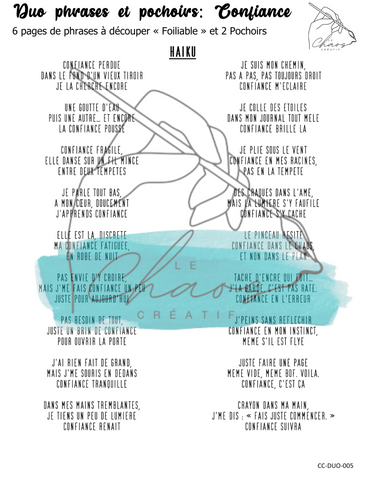 Duo phrases et pochoirs: Confiance
6 pages de phrases à découper « Foiliable » et 2 Pochoirs
LE
Chaos
CRÉATIF
HAIKU
CONFIANCE PERDUE
DANS LE FOND D'UN VIEUX TIROIR
JE LA CHERCHE ENCORE
UNE GOUTTE D'EAU
PUIS UNE AUTRE... ET ENCORE
LA CONFIANCE POUSSE
CONFIANCE FRAGILE,
ELLE DANSE SUR UN FIL MINCE
ENTRE DEUX TEMPETES
JE PARLE TOUT BAS,
A MON CŒUR, DOUCEMENT
J'APPRENDS CONFIANCE
ELLE EST LA, DISCRETE
MA CONFIANCE FATIGUEE,
EN ROBE DE NUIT
PAS ENVIE D'Y CROIRE,
MAIS J'ME FAIS CONFIANCE UN PEU
JUSTE POUR AUJOURD'HUI
PAS BESOIN DE TOUT,
JUSTE UN BRIN DE CONFIANCE
POUR OUVRIR LA PORTE
J'AI RIEN FAIT DE GRAND,
MAIS J'ME SOURIS EN DEDANS
CONFIANCE TRANQUILLE
DANS MES MAINS TREMBLANTES,
JE TIENS UN PEU DE LUMIERE
CONFIANCE RENAIT
JE SUIS MON CHEMIN,
PAS A PAS, PAS TOUJOURS DROIT
CONFIANCE M'ECLAIRE
JE COLLE DES ETOILES
DANS MON JOURNAL TOUT MELE
CONFIANCE BRILLE LA
JE PLIE SOUS LE VENT
CONFIANCE EN MES RACINES,
PAS EN LA TEMPETE
DES CRAQUES DANS L'AME,
MAIS LA LUMIERE S'Y FAUFILE
CONFIANCE S'Y CACHE
LE PINCEAU HESITE
CONFIANCE DANS LE CHAOS
ET NON DANS LE PLAN
TACHE D'ENCRE QUI FUITE
J'LA GARDE, C'EST PAS RATE.
CONFIANCE EN L'ERREUR
J'PEINS SANS REFLECHIR
CONFIANCE EN MON INSTINCT,
MEME S'IL EST FLYE
JUSTE FAIRE UNE PAGE
MEME VIDE, MEME BOF. VOILA.
CONFIANCE, C'EST CA
CRAYON DANS MA MAIN,
J'ME DIS : « FAIS JUSTE COMMENCER. »
CONFIANCE SUIVRA
LE
Chaos
CRÉATIF
CC-DUO-005